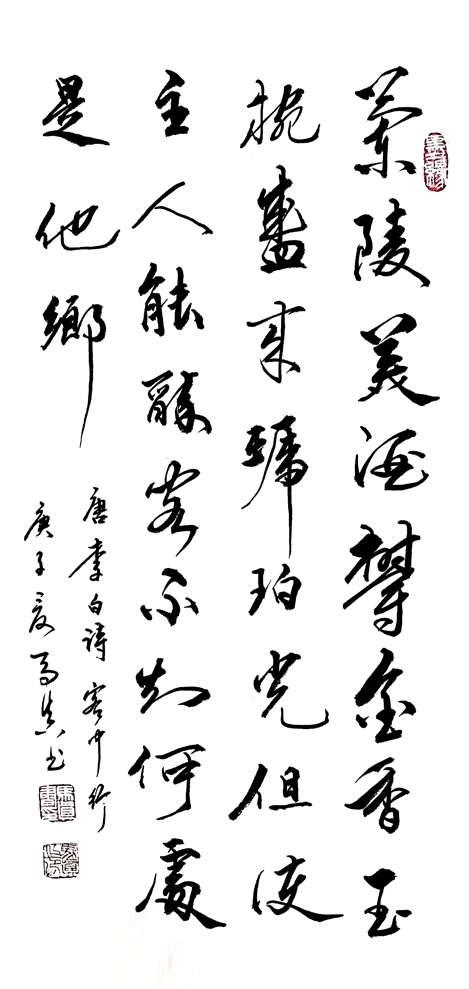 蘭陵美酒鬱金香玉
椀盛来琥珀光但使
主人能醉客不知何處
是他鄉
唐李白詩客中行
庚子夏马真书